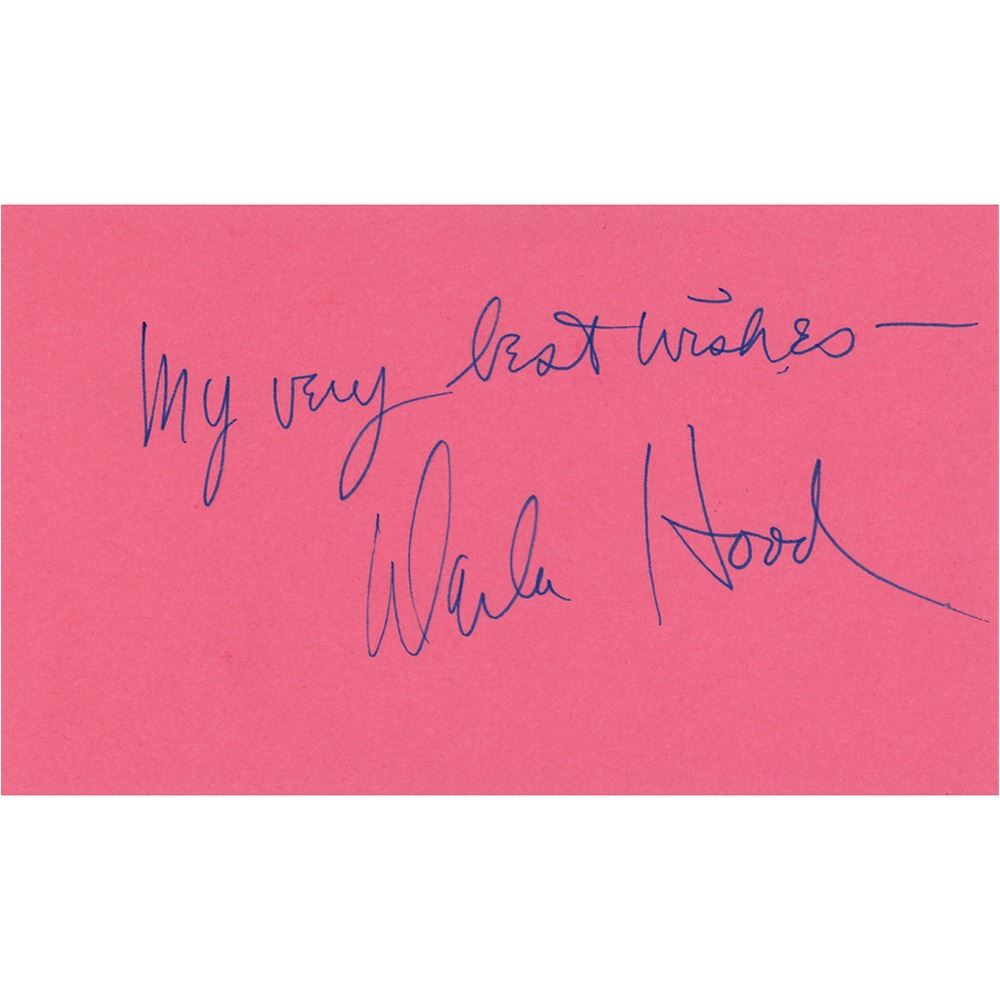 My very best wishes —
Darla Hood